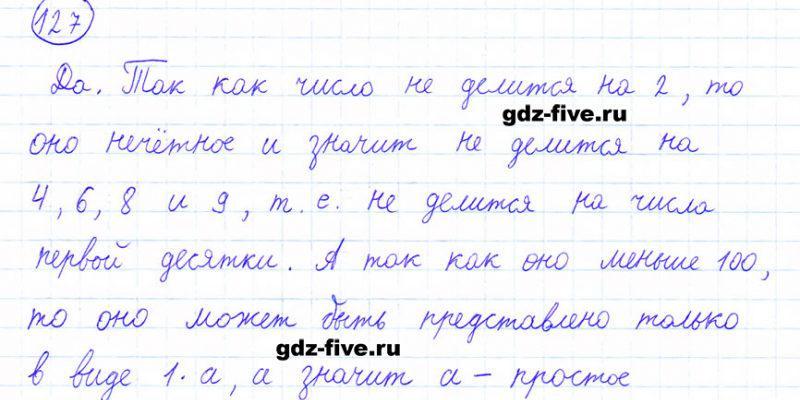 127
Да. Так как число не делится на 2, то
gdz-five.ru
оно нечётное и значит не делится на
4, 6, 8 и 9, т. е. не делится на числа
первой десятки. А так как оно меньше 100,
то оно может быть представлено только
gdz-five.ru
в виде 1·а, а значит а – простое